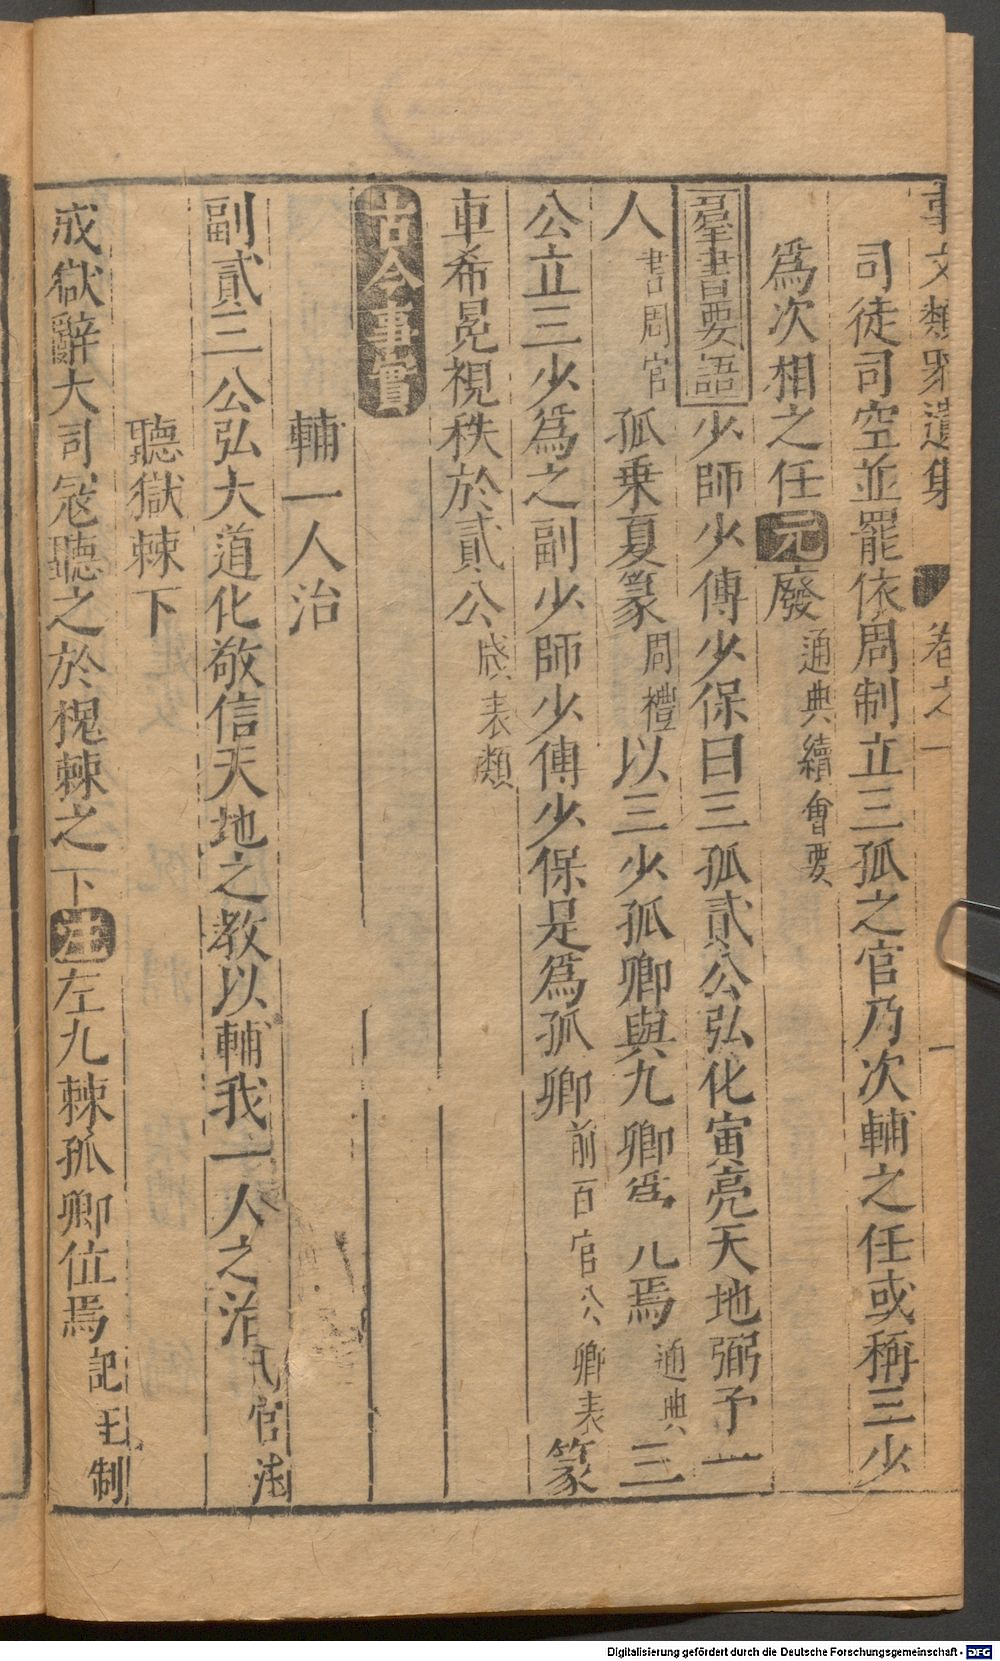 事文類聚遺集 卷之一 一
司徒司空並罷依周制立三孤之官乃次輔之任或稱三少
爲次相之任元廢通典續會要
羣書要語少師少傅少保曰三孤貳公弘化寅亮天地弼予一
人書周官孤乗夏篆周禮以三少孤卿與九卿爲 焉通典三
公立三少爲之副少師少傅少保是爲孤卿前百官公卿表篆
車希冕視秩於貳公牋表類
古今事實
輔一人治
副貳三公弘大道化敬信天地之教以輔我一人之治 官注
聽獄棘下
成獄辭大司宼聽之於槐棘之下注左九棘孤卿位焉記王制
Digitalisierung gefördert durch die Deutsche Forschungsgemeinschaft - DFG